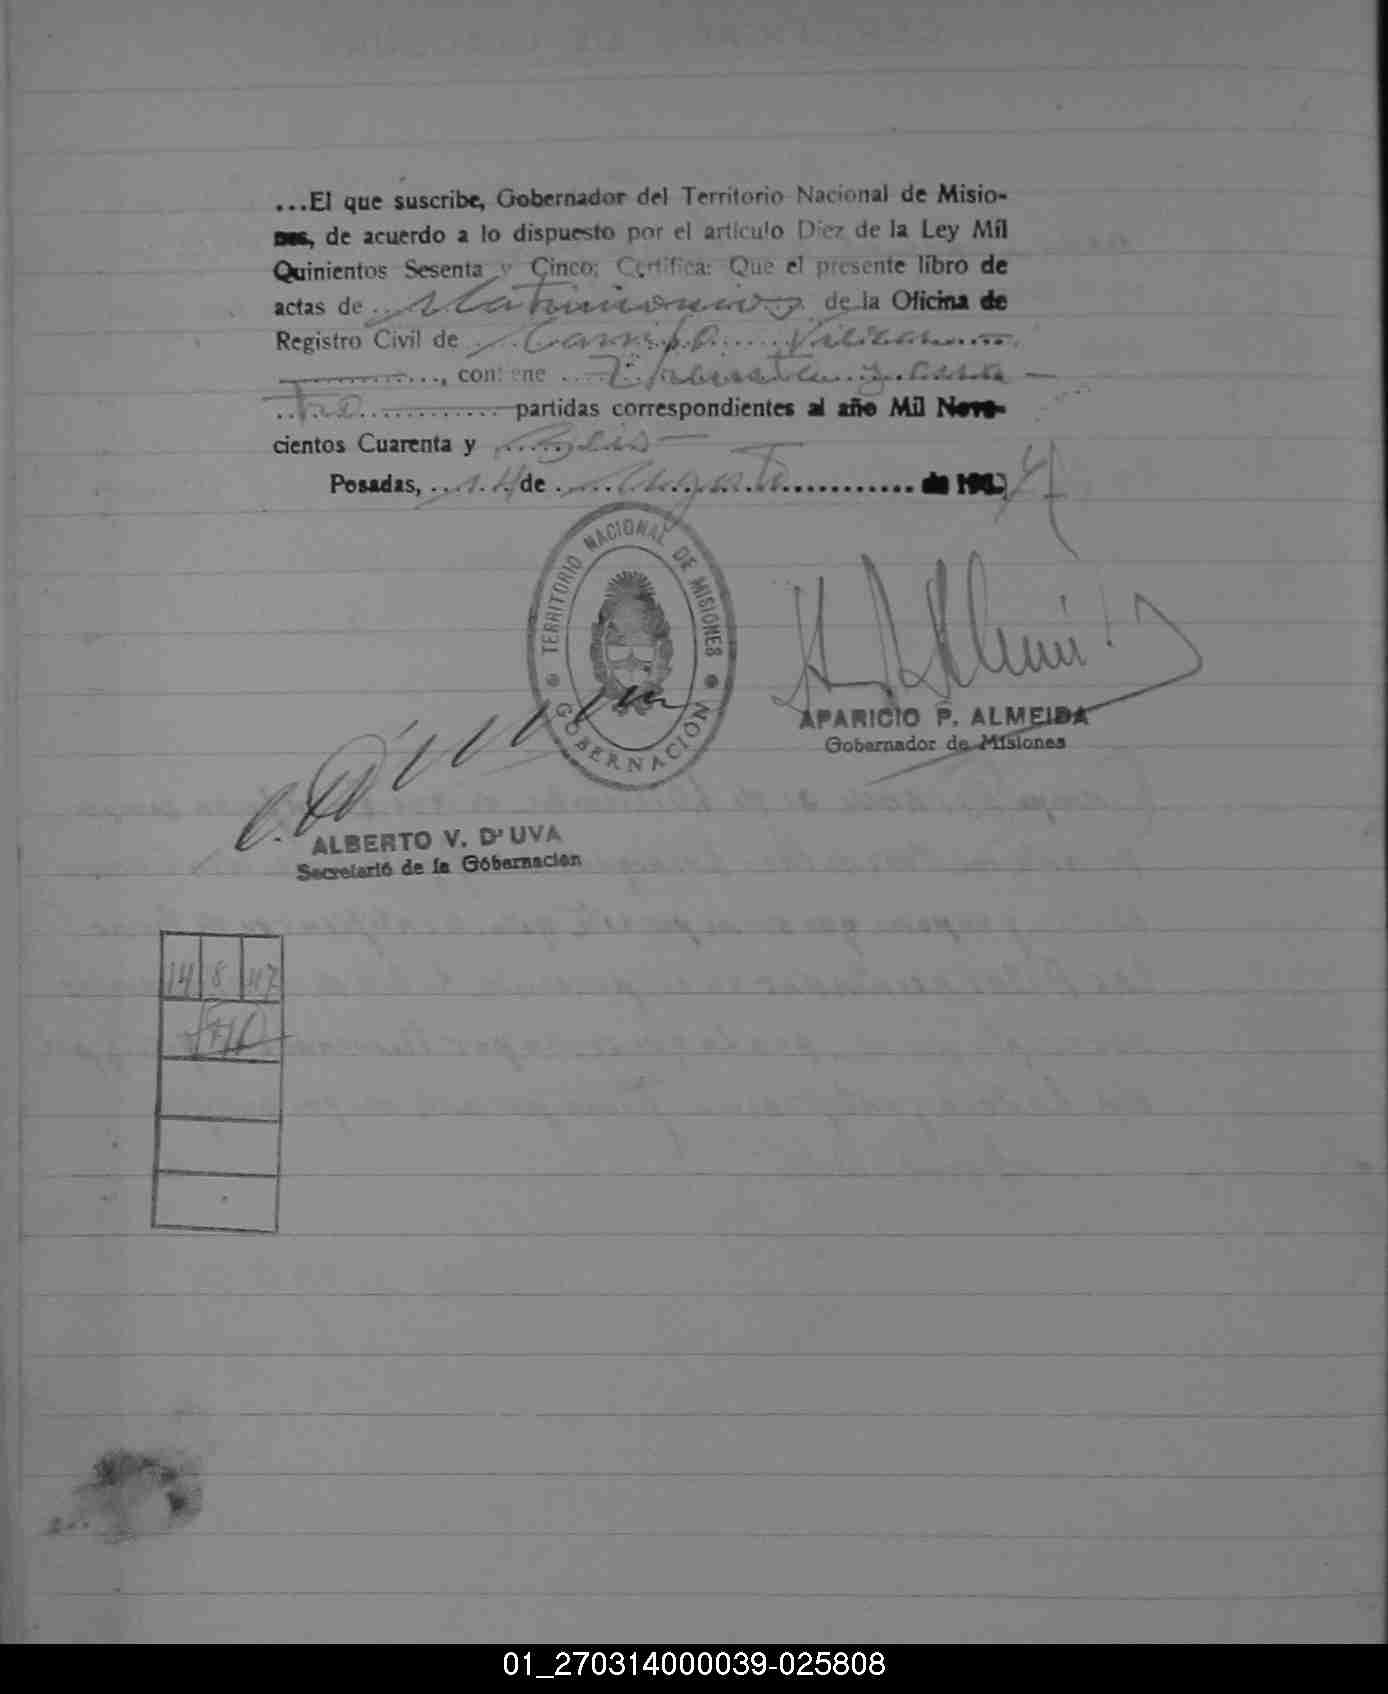 ...El que suscribe, Gobernador del Territorio Nacional de Misio-
nes, de acuerdo a lo dispuesto por el artículo Diez de la Ley Mil
Quinientos Sesenta y Cinco; Certifica: Que el presente libro de
actas de .. Matrimonios .. de la Oficina de
Registro Civil de .. Campo Viera .....
............, contiene .... y
............ partidas correspondientes al año Mil Nove-
cientos Cuarenta y .. Seis
Posadas, .. 14 de .. Agosto .......... de 194 7
TERRITORIO NACIONAL DE MISIONES
GOBERNACIÓN
APARICIO P. ALMEIDA
Gobernador de Misiones
ALBERTO V. D'UVA
Secretario de la Gobernación
14 8 47
01_270314000039-025808